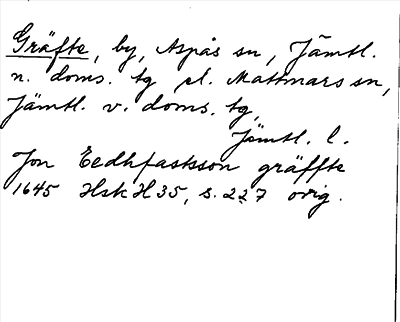 Gräfte, by, Aspås sn, Jämtl.
n. doms. tg el. Mattmars sn,
Jämtl. v. doms. tg,
Jämtl. l.
Jon Eedhfastsson gräffte
1645 HskH35, s. 227 orig.